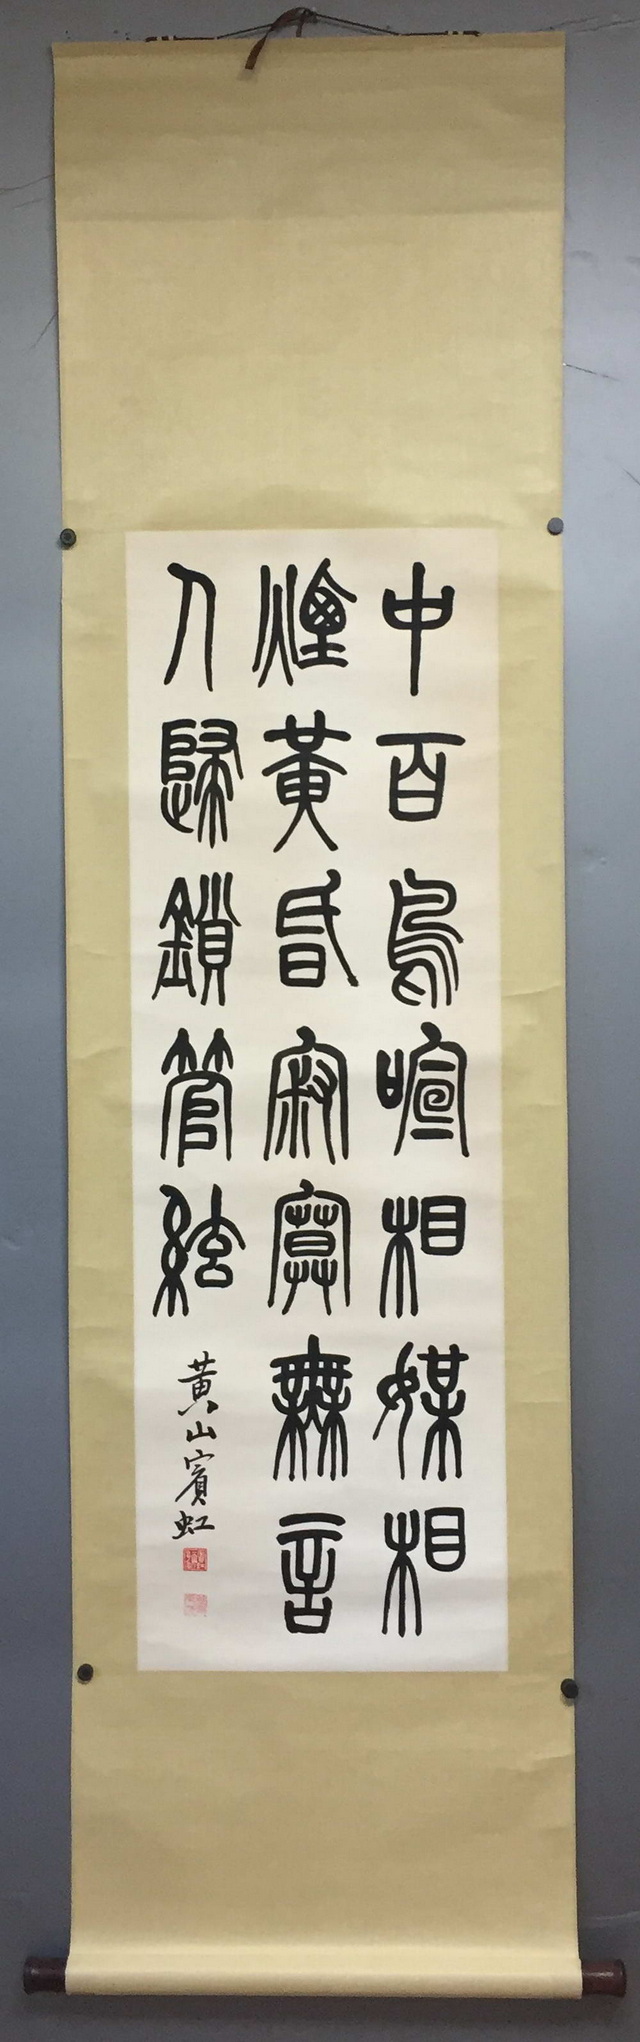 中百鳥喧相媒相
煙黃昏寂寞無言
人歸鎖管絃
黃山賓虹